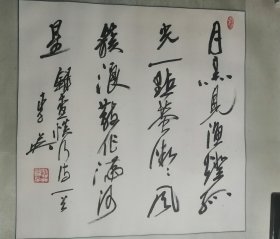 月黑見漁燈孤
光一點螢微々風
簇浪散作滿河
星 錄查慎行詩一首
李